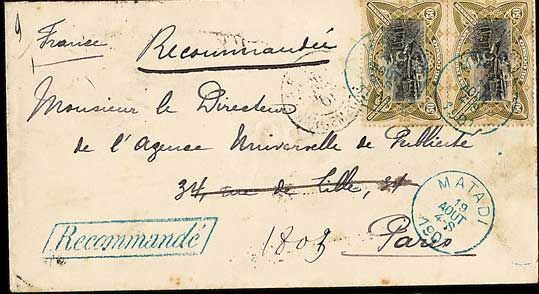 France
Recommandée
Monsieur le Directeur
de l'Agence Universelle de Publicité
34, rue de Lille, 34
Paris
Recommandé
1809
MATADI
19
AOUT
4-S
190
50
50
50
50